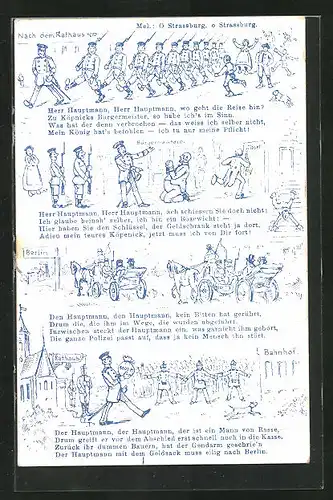 Mel.: O Strassburg, o Strassburg.
Nach dem Rathaus
Herr Hauptmann, Herr Hauptmann, wo geht die Reise hin?
Zu Köpnicks Bürgermeister, so habe ich's im Sinn.
Was hat der denn verbrochen — das weiss ich selber nicht,
Mein König hat's befohlen — ich tu nur meine Pflicht!
Herr Hauptmann, Herr Hauptmann, ach schiessen Sie doch nicht!
Ich glaube beinah' selber, ich bin ein Bösewicht: —
Hier haben Sie den Schlüssel, der Geldschrank steht ja dort.
Adieu mein teures Köpenick, jetzt muss ich von Dir fort!
Berlin
Den Hauptmann, den Hauptmann, kein Bitten hat gerührt,
Drum die, die ihm im Wege, die wurden abgeführt.
Inzwischen steckt der Hauptmann ein, was garnicht ihm gehört,
Die ganze Polizei passt auf, dass ja kein Mensch ihn stört.
Rathaus
Bahnhof.
Der Hauptmann, der Hauptmann, der ist ein Mann von Rasse,
Drum greift er vor dem Abschied erst schnell noch in die Kasse.
Zurück ihr dummen Bauern, hat der Gendarm geschrie'n
Der Hauptmann mit dem Geldsack muss eilig nach Berlin.